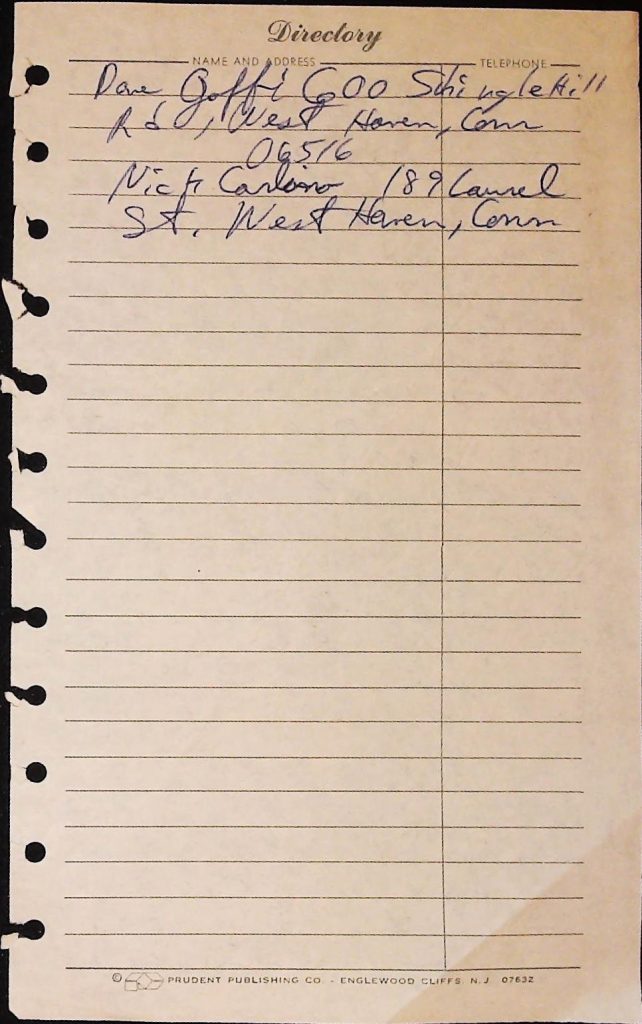 Directory
NAME AND ADDRESS TELEPHONE
Dave Goffi 600 Shingle Hill
Rd, West Haven, Conn
06516
Nick Carlino 189 Laurel
St. West Haven, Conn
© PRUDENT PUBLISHING CO. - ENGLEWOOD CLIFFS N.J. 07632